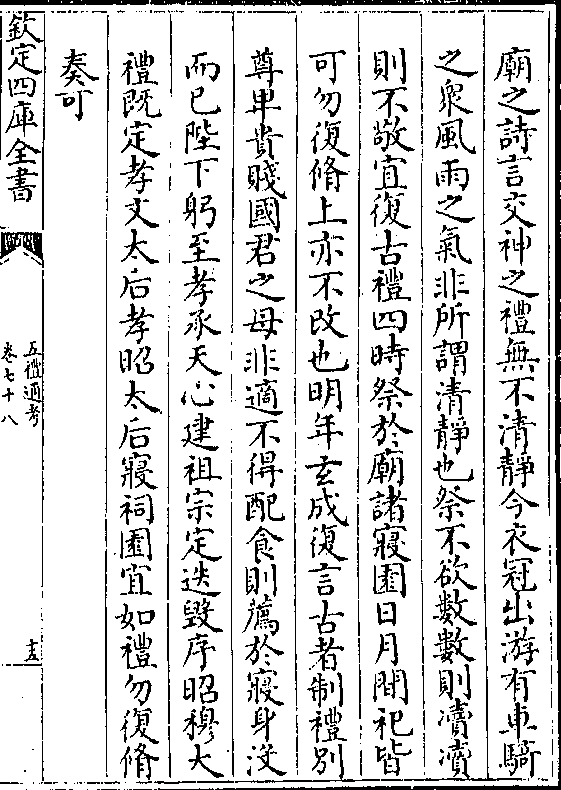 廟之詩言交神之禮無不清靜今衣冠出游有車騎
之衆風雨之氣非所謂清靜也祭不欲數數則瀆瀆
則不敬宜復古禮四時祭於廟諸寢園日月閒祀皆
可勿復脩上亦不改也明年玄成復言古者制禮別
尊卑貴賤國君之母非適不得配食則薦於寢身沒
而已陛下躬至孝承天心建祖宗定迭毀序昭穆大
禮既定孝文太后孝昭太后寢祠園宜如禮勿復脩
奏可
欽定四庫全書
五禮通考
卷七十八
十五